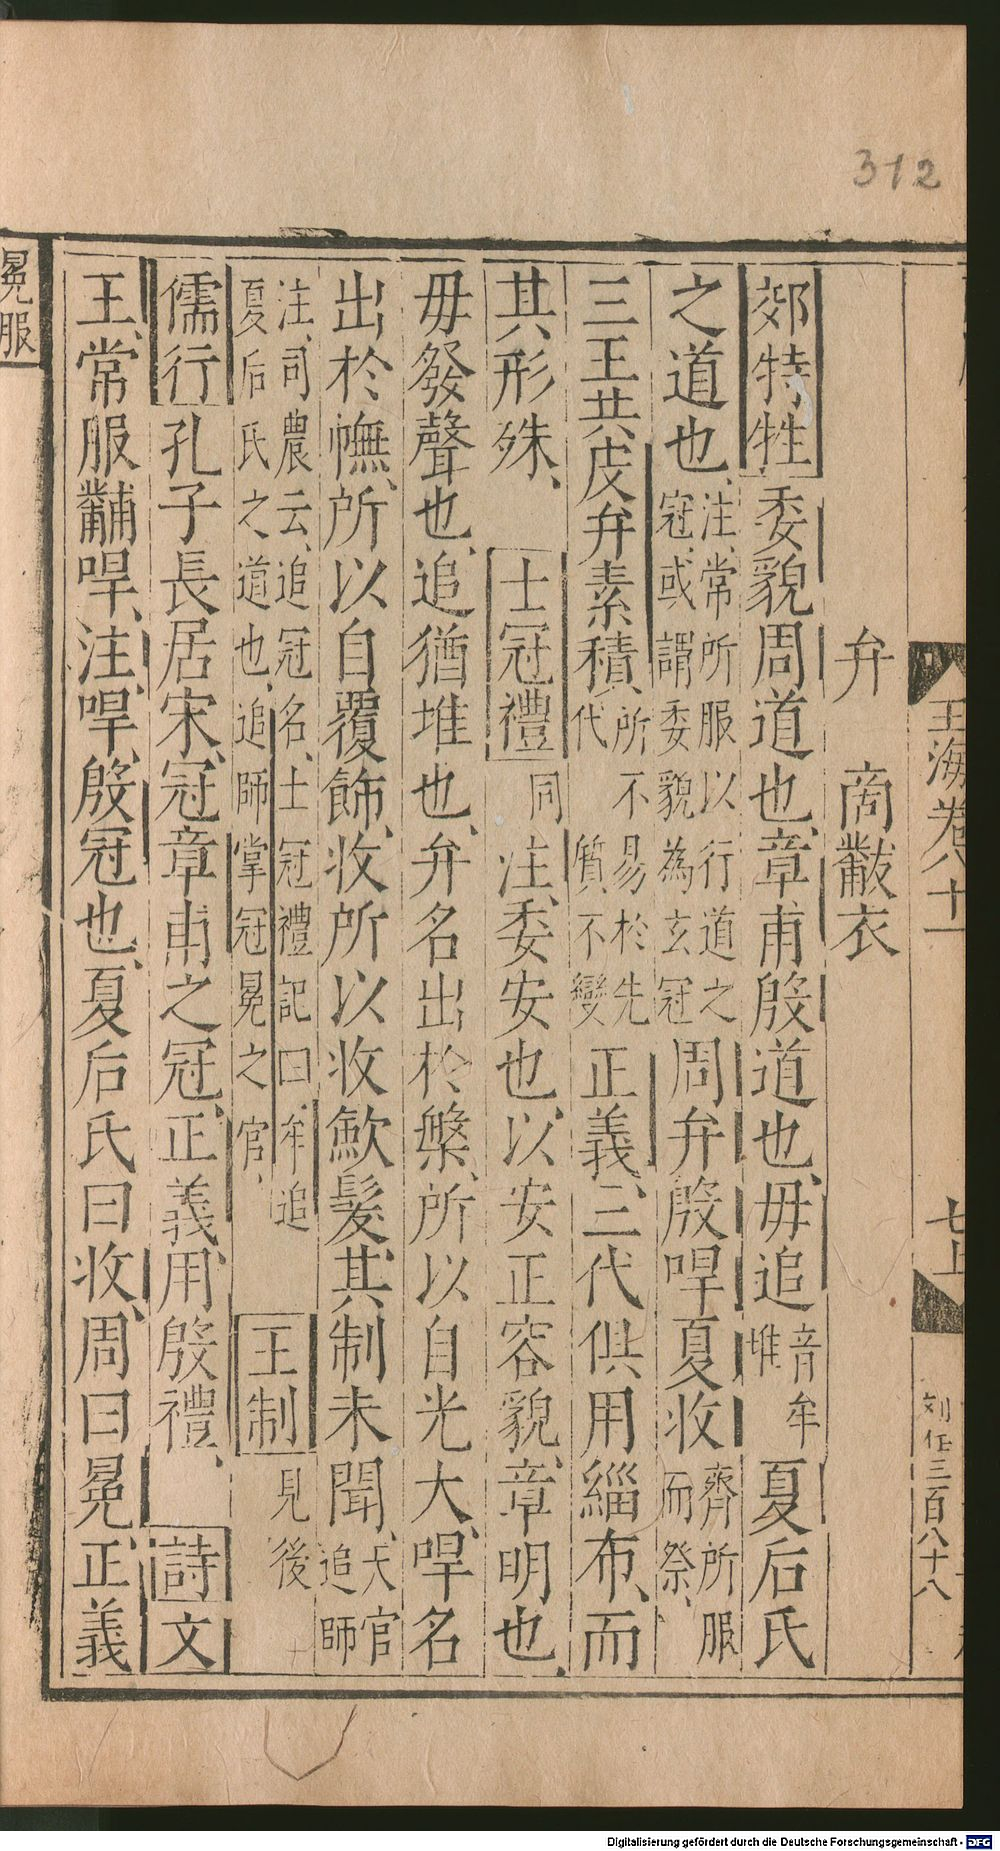 312
玉海卷八十一
七上
刘任三百八十八
弁　啇黻衣
郊特牲委貌周道也章甫殷道也毋追音牟堆夏后氏
之道也注常所服以行道之冠或謂委貌為玄冠周弁殷哻夏收齊所服而祭
三王共皮弁素積所不易於先代質不變正義三代俱用緇布而
其形殊士冠禮同注委安也以安正容貌章明也
毋發聲也追猶堆也弁名出於槃所以自光大哻名
出於幠所以自覆飾收所以收歛髮其制未聞天官追師
注司農云追冠名士冠禮記曰牟追夏后氏之道也追師掌冠冕之官王制見後
儒行孔子長居宋冠章甫之冠正義用殷禮詩文
王常服黼哻注哻殷冠也夏后氏曰收周曰冕正義
冕服
Digitalisierung gefördert durch die Deutsche Forschungsgemeinschaft - DFG